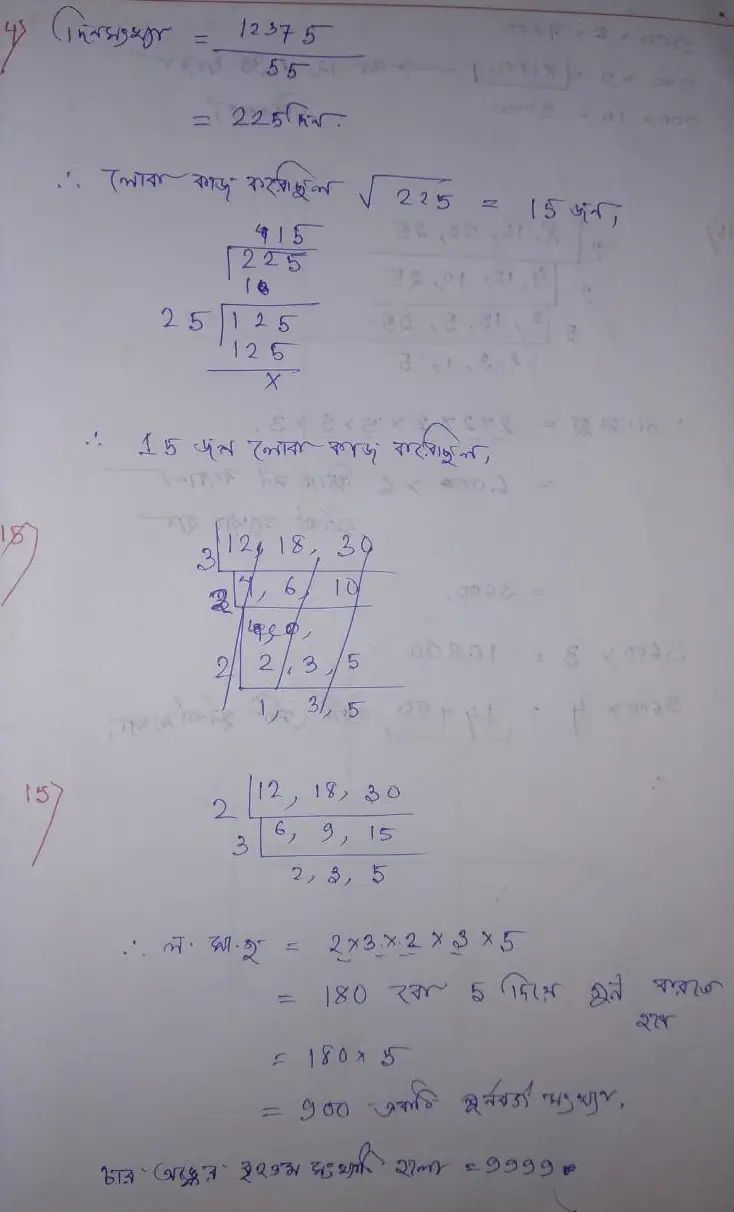 4) দিনসংখ্যা = 12375
55
= 225 দিন.
∴ লোক কাজ করেছিল √225 = 15 জন,
15
225
1
25 125
125
x
∴ 15 জন লোক কাজ করেছিল,
15)
3 12, 18, 30
4, 6, 10
2 2, 3, 5
1, 3, 5
15)
2 12, 18, 30
3 6, 9, 15
2, 3, 5
∴ ল. সা. গু = 2×3×2×3×5
= 180 কে 5 দিয়ে গুন করতে
হবে
= 180×5
= 900 একটি পূর্নবর্গ সংখ্যা,
চার অঙ্কের বৃহত্তম সংখ্যাটি হলো = 9999